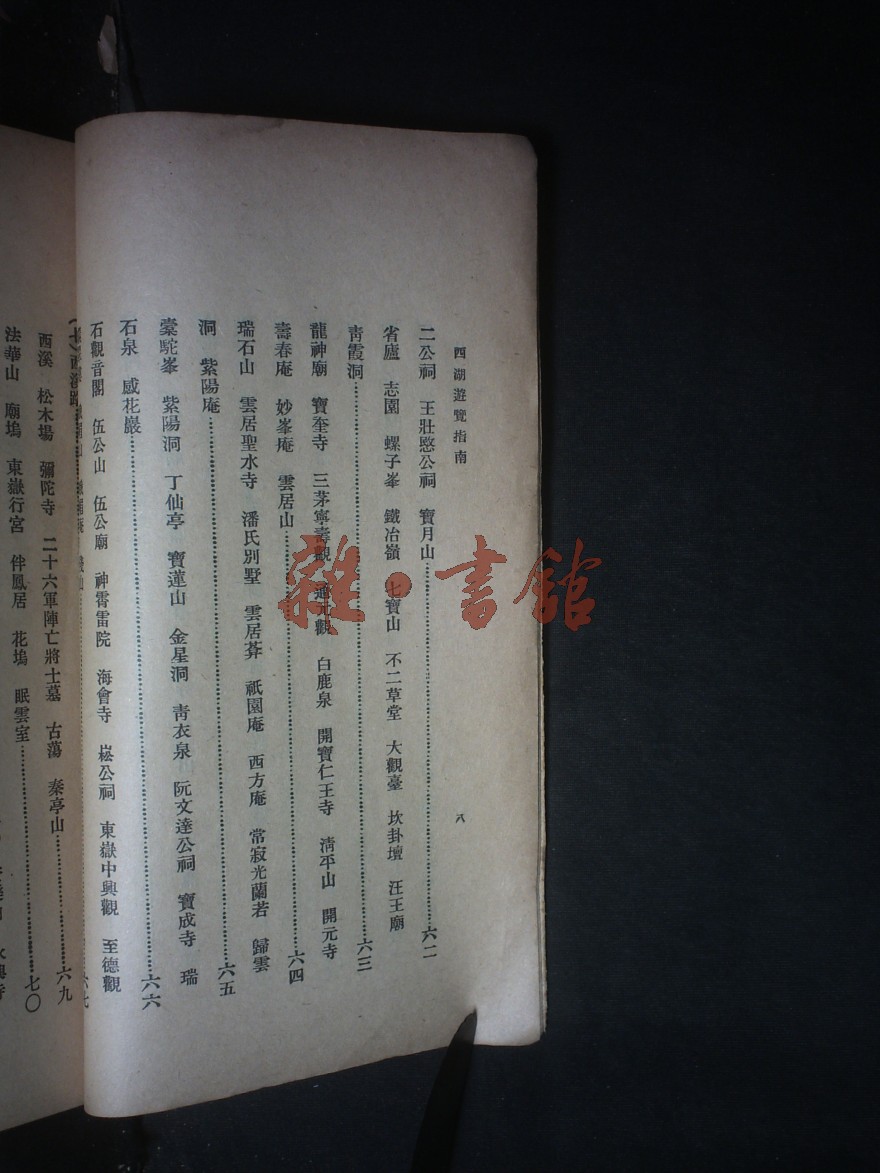 西湖遊覽指南
八
二公祠 王壯愍公祠 寶月山……六二
省廬 志園 螺子峯 鐵冶嶺 七寶山 不二草堂 大觀臺 坎卦壇 汪王廟
青霞洞……六三
龍神廟 寶奎寺 三茅寧壽觀 通元觀 白鹿泉 開寶仁王寺 清平山 開元寺
壽春庵 妙峯庵 雲居山……六四
瑞石山 雲居聖水寺 潘氏別墅 雲居莽 祇園庵 西方庵 常寂光蘭若 歸雲
洞 紫陽庵……六五
橐駝峯 紫陽洞 丁仙亭 寶蓮山 金星洞 青衣泉 阮文達公祠 寶成寺 瑞
石泉 感花巖……六六
石觀音閣 伍公山 伍公廟 神霄雷院 海會寺 崧公祠 東嶽中興觀 至德觀
六七
(七)西溪路
西溪 松木場 彌陀寺 二十六軍陣亡將士墓 古蕩 秦亭山……六九
法華山 廟塢 東嶽行宮 伴鳳居 花塢 眠雲室……七〇
雜·書館